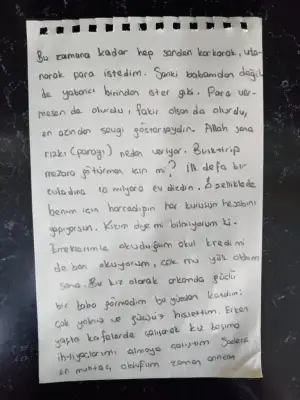 Bu zamana kadar hep senden korkarak, uta-
narak para istedim. Sanki babamdan değil
de yabancı birinden ister gibi. Para ver-
mesen de olurdu, fakir olsan da olurdu,
en azından sevgi gösterseydin. Allah sana
rızkı (parayı) neden veriyor. Biriktirip
mezara götürmen için mi? İlk defa bir
evladına 10 milyara ev dizdin. Özellikle de
benim için harcadığın her kuruşun hesabını
yapıyorsun. Kızım diye mi bilmiyorum ki.
Emeklerimle okuduğum okul kredimi
de ben okuyorum, çok mu yük oldum
sana. Bu kız olarak arkanda güçlü
bir baba görmedim bu yüzden kendimi
çok yalnız ve güçsüz hissettim. Erken
yaşta kafelerde çalışarak kız başıma
ihtiyaçlarımı almaya çalıştım. Sadece
en muhtaç olduğum zaman annem